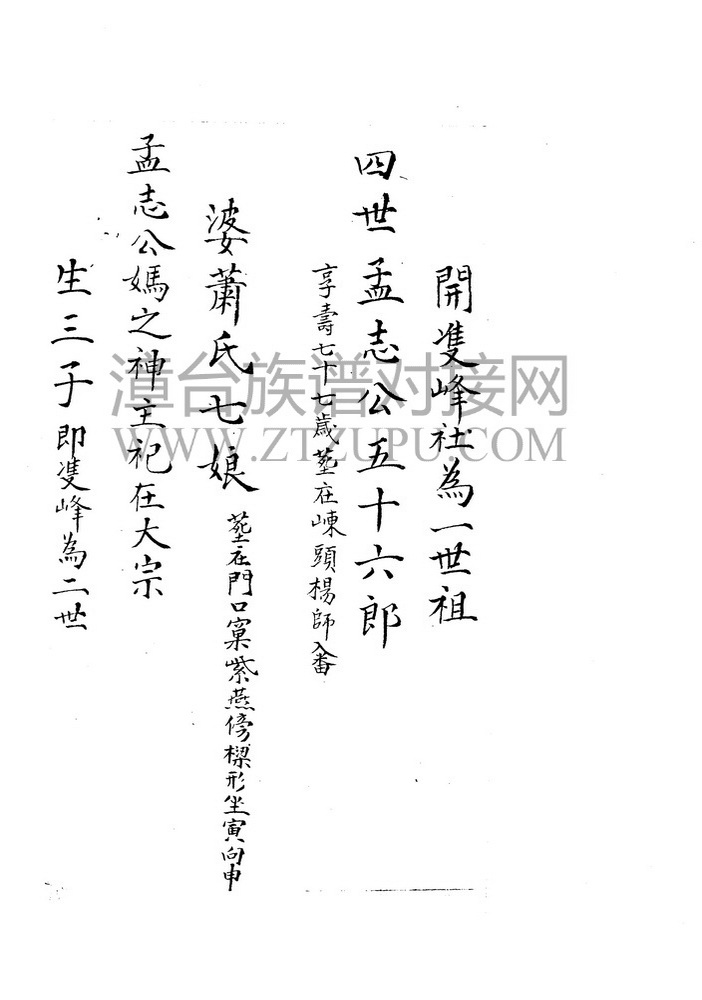 開隻峰社為一世祖
四世孟志公五十六郎
享壽七十七歲塟在崠頭楊師入番
婆蕭氏七娘塟在門口窠紫燕傍樑形坐寅向申
孟志公媽之神主祀在大宗
生三子即隻峰為二世
漳台族谱对接网
WWW.ZTZUPU.COM